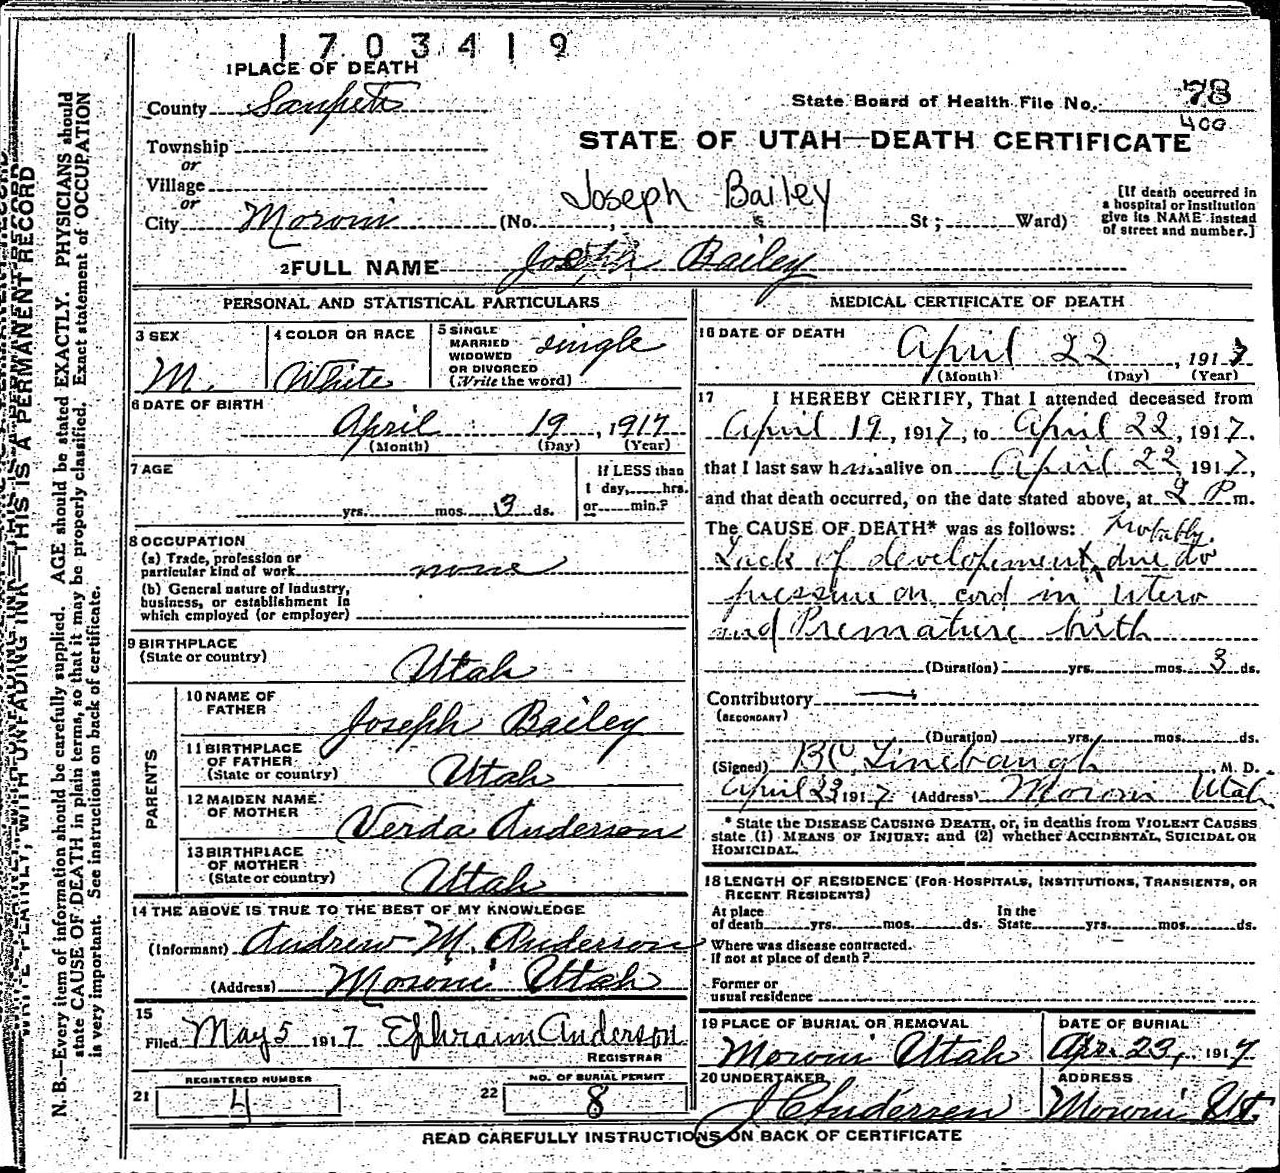 1703419
1 PLACE OF DEATH
County Sanpete
State Board of Health File No. 78
400
STATE OF UTAH—DEATH CERTIFICATE
Township
or
Village
or
City Moroni (No. , St; Ward)
Joseph Bailey
[If death occurred in
a hospital or institution
give its NAME instead
of street and number.]
2 FULL NAME Joseph Bailey
PERSONAL AND STATISTICAL PARTICULARS
3 SEX
M.
4 COLOR OR RACE
White
5 SINGLE
MARRIED
WIDOWED
OR DIVORCED
(Write the word)
single
6 DATE OF BIRTH
April 19, 1917
(Month) (Day) (Year)
7 AGE
yrs. mos. 3 ds.
If LESS than
1 day, hrs.
or min.?
8 OCCUPATION
(a) Trade, profession or
particular kind of work none
(b) General nature of Industry,
business, or establishment in
which employed (or employer)
9 BIRTHPLACE
(State or country)
Utah
PARENTS
10 NAME OF
FATHER
Joseph Bailey
11 BIRTHPLACE
OF FATHER
(State or country)
Utah
12 MAIDEN NAME
OF MOTHER
Verda Anderson
13 BIRTHPLACE
OF MOTHER
(State or country)
Utah
14 THE ABOVE IS TRUE TO THE BEST OF MY KNOWLEDGE
(Informant) Andrew M. Anderson
(Address) Moroni Utah
15
Filed May 5 1917 Ephraim Anderson
REGISTRAR
21 REGISTERED NUMBER
4
22 NO. OF BURIAL PERMIT
8
MEDICAL CERTIFICATE OF DEATH
16 DATE OF DEATH
April 22, 1917
(Month) (Day) (Year)
17 I HEREBY CERTIFY, That I attended deceased from
April 19, 1917, to April 22, 1917,
that I last saw him alive on April 22, 1917,
and that death occurred, on the date stated above, at 2 P m.
The CAUSE OF DEATH* was as follows: Probably
Lack of development, due to
pressure on cord in utero
and Premature birth
(Duration) yrs. mos. 3 ds.
Contributory
(SECONDARY)
(Duration) yrs. mos. ds.
(Signed) BC Linebaugh, M. D.
April 23 1917 (Address) Moroni Utah
* State the DISEASE CAUSING DEATH, or, in deaths from VIOLENT CAUSES
state (1) MEANS OF INJURY; and (2) whether ACCIDENTAL, SUICIDAL OR
HOMICIDAL.
18 LENGTH OF RESIDENCE (FOR HOSPITALS, INSTITUTIONS, TRANSIENTS, OR
RECENT RESIDENTS)
At place
of death yrs. mos. ds.
In the
State yrs. mos. ds.
Where was disease contracted.
if not at place of death?
Former or
usual residence
19 PLACE OF BURIAL OR REMOVAL
Moroni Utah
DATE OF BURIAL
Apr. 23, 1917
20 UNDERTAKER
J C Andersen
ADDRESS
Moroni Ut.
READ CAREFULLY INSTRUCTIONS ON BACK OF CERTIFICATE
WRITE PLAINLY, WITH UNFADING INK—THIS IS A PERMANENT RECORD
N. B.—Every item of information should be carefully supplied. AGE should be stated EXACTLY. PHYSICIANS should
state CAUSE OF DEATH in plain terms, so that it may be properly classified. Exact statement of OCCUPATION
is very important. See instructions on back of certificate.